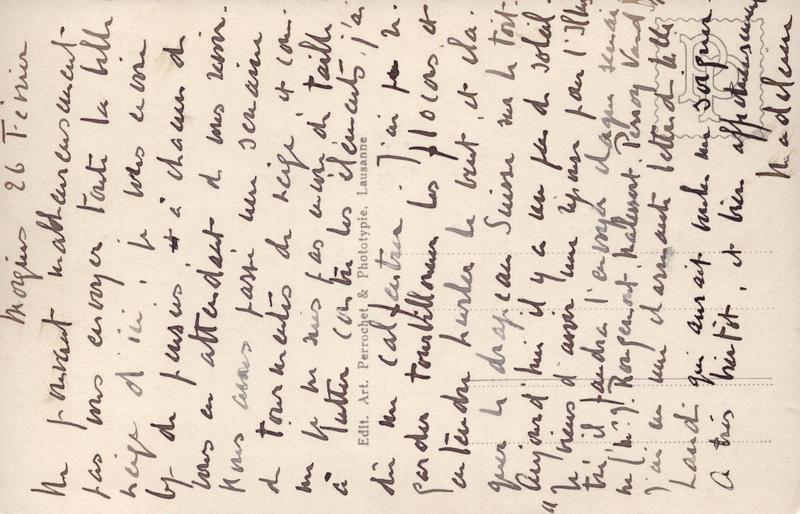 Morgins 26 Février
Ne pouvant malheureusement
pas vous envoyer toute la belle
neige d'ici, je vous envoie
de pensées et à chacun de
vous en attendant de vous revoir.
Nous avons passé une semaine
de tourmentes de neige et comme
je ne suis pas encore de taille
à lutter contre les éléments, j'ai
dû me calfeutrer. J'ai pu
garder tourbillonner les flocons, et
entendre hurler le vent, et cla-
quer le drapeau Suisse sur le toit.
Aujourd'hui il y a un peu de soleil.
Je viens d'avoir une réponse pour
il faudra l'envoyer chaque semaine
Rougemont
J'ai eu une charmante lettre de
Landi qui aurait voulu me soigner.
A très bientôt, et bien affectueusement
Madeleine
Edit. Art. Perrochet & Phototypie, Lausanne